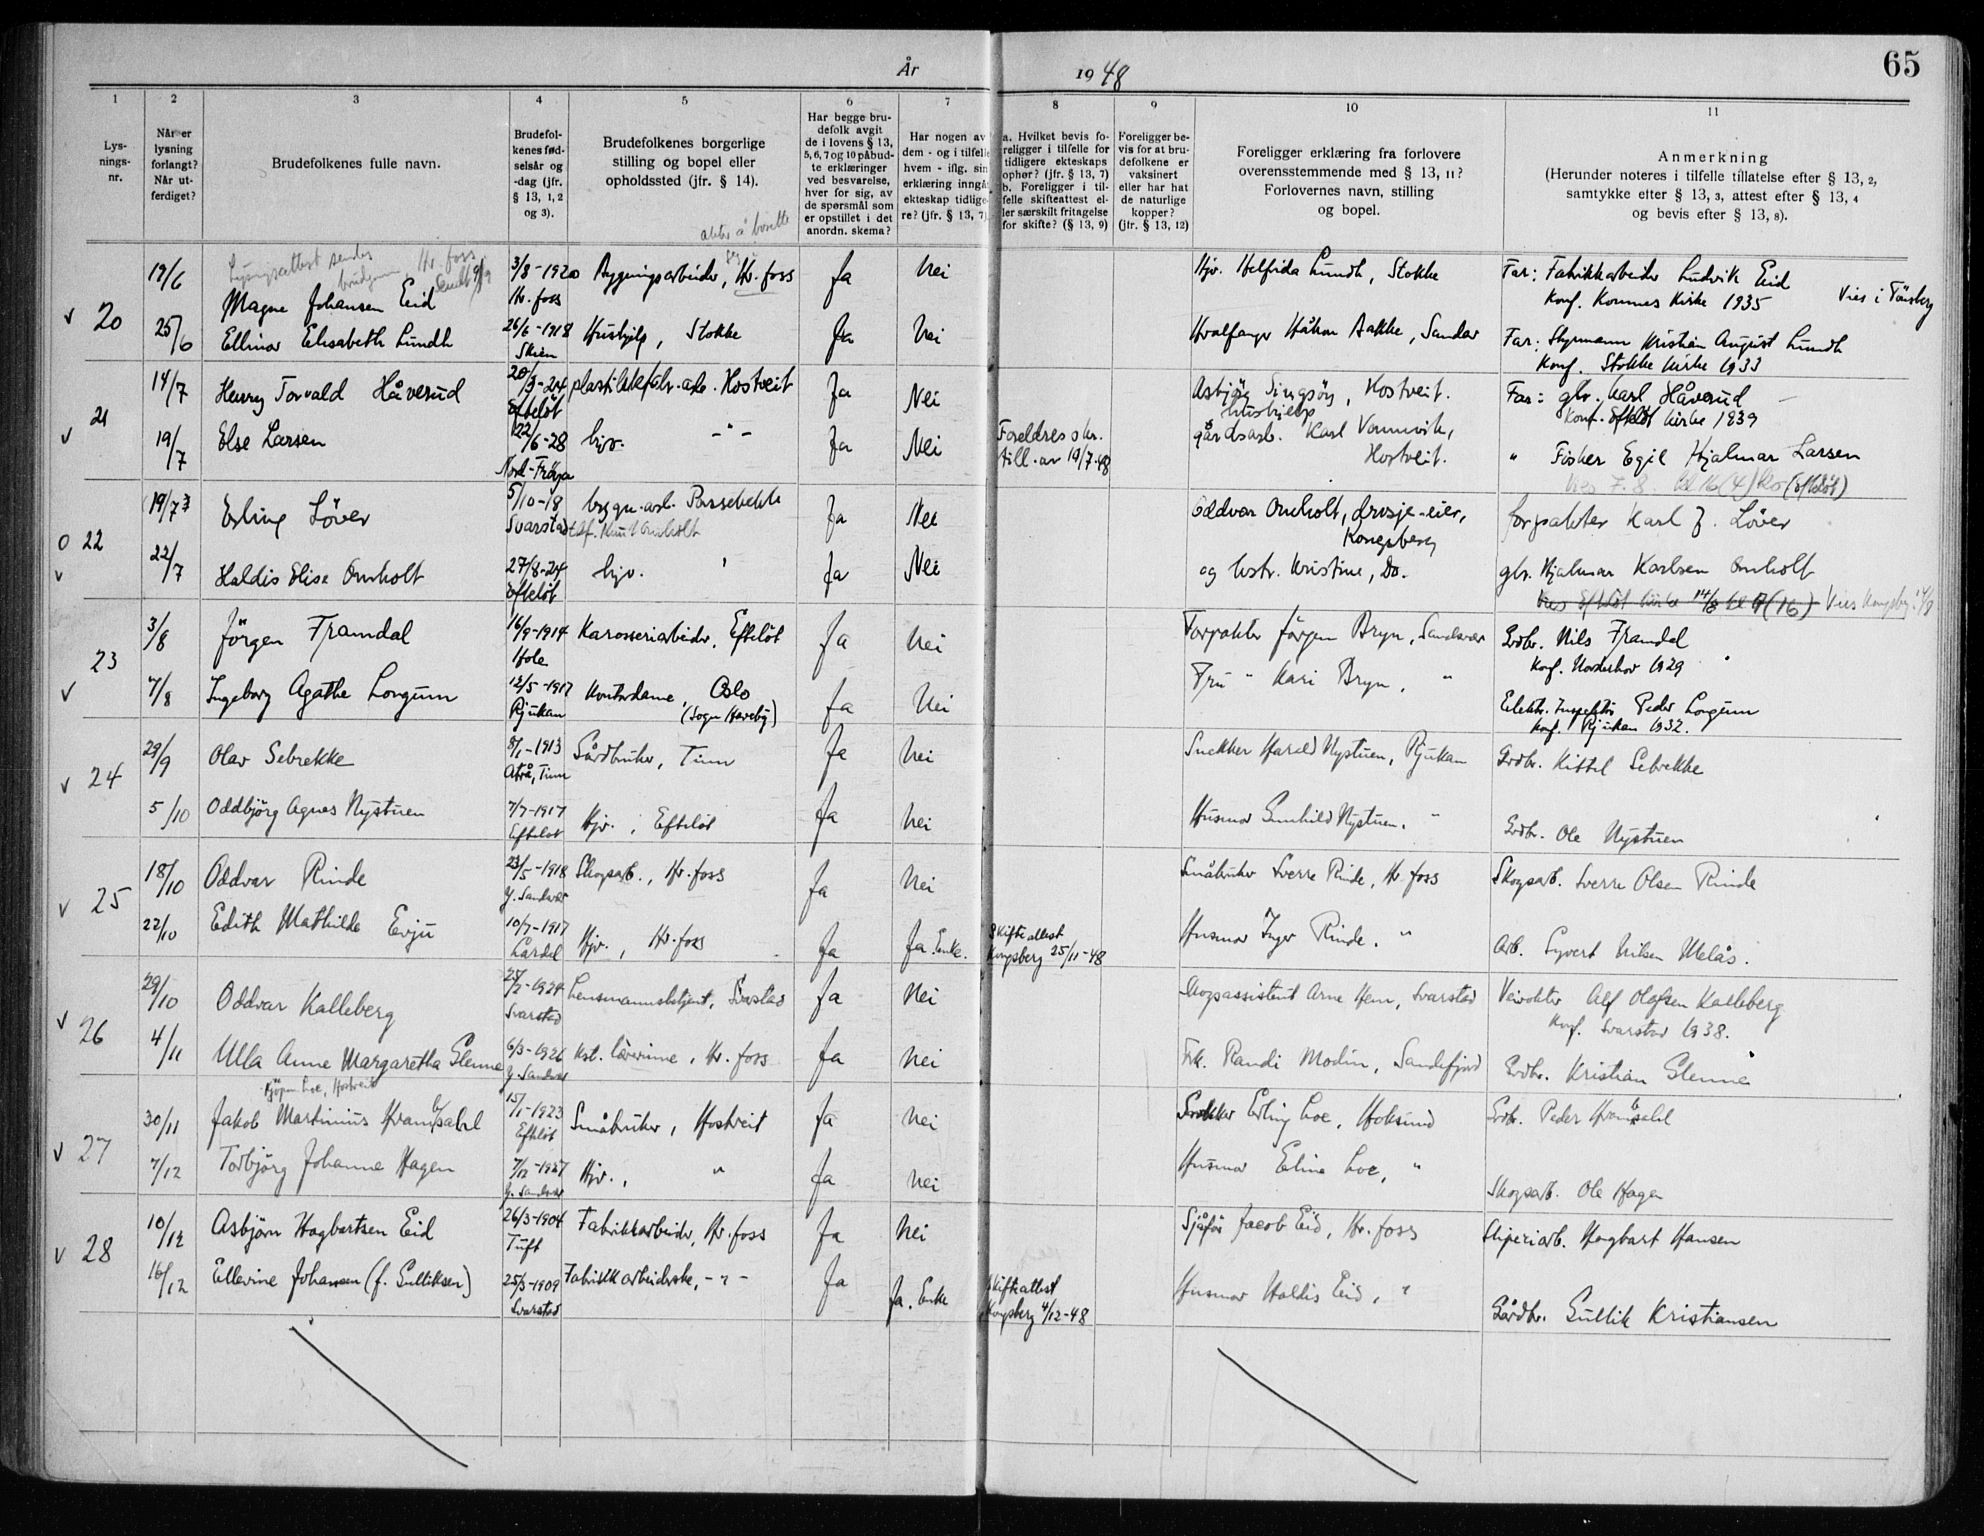 År 1948
65
1
2
3
4
5
6
7
8
9
10
11
Lys-
nings-
nr.
Når er
lysning
forlangt?
Når ut-
ferdiget?
Brudefolkenes fulle navn.
Brudefol-
kenes fød-
selsår og
-dag (jfr.
§ 13, 1, 2
og 3).
Brudefolkenes borgerlige
stilling og bopel eller
opholdssted (jfr. § 14).
Har begge bru-
defolk avgit
de i lovens § 13,
5, 6, 7 og 10 påbud-
te erklæringer
ved besvarelse,
hver for sig, av
de spørsmål som
er opstillet i det
anordn. skema?
Har nogen av
dem - og i tilfelle
hvem - iflg. sin
erklæring inngå
ekteskap tidlige-
re? (jfr. § 13, 7)
a. Hvilket bevis fo-
religger i tilfelle for
tidligere ekteskaps
ophør? (jfr. § 13, 7)
b. Foreligger i til-
felle skifteattest el-
ler særskilt fritagelse
for skifte? (§ 13, 9)
Foreligger be-
vis for at bru-
defolkene er
vaksinert
eller har hat
de naturlige
kopper?
(jfr. § 13, 12)
Foreligger erklæring fra forlovere
overensstemmende med § 13, 11?
Forlovernes navn, stilling
og bopel.
Anmerkning
(Herunder noteres i tilfelle tillatelse efter § 13, 2,
samtykke etter § 13, 3, attest efter § 13, 4
og bevis efter § 13, 8).
akter å bosette seg i
Lysningsattest sendes
brudgom, Hv. foss
v 20
19/6
Magne Johansen Eid
3/8-1920
Hv. foss
Bygningsarbeider, Hv. foss
Ja
Nei
Hjv. Helfrida Lundh, Stokke
Far: Fabrikkarbeider Ludvik Eid
Konf. Komnes Kirke 1935
Vies i Tönsberg
25/6
Ellinor Elisabeth Lundh
26/6-1918
Skien
Hushjelp, Stokke
Ja
Nei
Hvalfanger Håkon Bakke, Sandar
Far: Styrmann Kristian August Lundh
Konf. Stokke kirke 1933
v 21
14/7
Henry Torvald Håverud
20/3-24
Efteløt
plastikkfabr.-arb. Hostveit
Ja
Nei
Asbjörg Singsös, Hostveit.
hushjelp
Far: gbr. Karl Håverud
Konf. Efteløt kirke 1939
19/7
Else Larsen
22/6-28
Nord-Fröya
hjv. -"-
Ja
Nei
Foreldres skr.
till. av 19/7-48
gårdsarb. Karl Vannvik,
Hostveit.
" Fisker Egil Hjalmar Larsen
Vies 7.8. kl 16 (4) (Efteløt)
o 22
v
19/7
Erling Löver
5/10-18
Svarstad
bygn.-arb. Passebekk
tlf. Knut Omholt
Ja
Nei
Oddvar Omholt, drosje-eier,
Kongsberg
forpakter Karl J. Löver
22/7
Haldis Elise Omholt
27/8-24
Efteløt
hjv. "
Ja
Nei
og hstr. Kristine, Do.
gbr. Hjalmar Karlsen Omholt
Vies Efteløt kirke 14/8 kl 4 (16) Vies Kongsberg 14/8
v 23
3/8
Jörgen Framdal
16/9-1914
Hole
Karosseriarbeider, Efteløt
Ja
Nei
Forpakter Jörgen Bryn, Sandsvær
Grdbr. Nils Framdal
Konf. Norderhov 1929
7/8
Ingeborg Agathe Longum
12/5-1917
Rjukan
Kontordame, Oslo
(Sogn Haveby)
Ja
Nei
Fru " Kari Bryn, "
Elektr. Inspektör Peder Longum
Konf. Rjukan 1932.
v 24
29/9
Olav Sebrekke
8/1-1913
Atrå, Tinn
Gårdbruker, Tinn
Ja
Nei
Snekker Harald Nystuen, Rjukan
Grdbr. Kittil Sebrekke
5/10
Oddbjörg Agnes Nystuen
7/7-1917
Efteløt
Hjv., Efteløt
Ja
Nei
Husmor Gunhild Nystuen, "
Grdbr. Ole Nystuen
v 25
18/10
Oddvar Rinde
23/5-1918
Y. Sandsvær
Skogsarb., Hv. foss
Ja
Nei
Småbruker Sverre Rinde, Hv. foss
Skogsarb. Sverre Olsen Rinde
22/10
Edith Mathilde Evju
10/7-1917
Lardal
Hjv., Hv. foss
Ja
Ja. Enke.
Skifteattest
Kongsberg 25/11-48
Husmor Inger Rinde. "
Arb. Syvert Nilsen Melås.
v 26
29/10
Oddvar Kalleberg
25/2-1924
Svarstad
Lensmannsbetjent, Svarstad
Ja
Nei
Skogsassistent Arne Hem, Svarstad
Veivokter Alf Olafsen Kalleberg
Konf. Svarstad 1938.
4/11
Ulla Anne Margaretha Glenne
6/3-1926
Y. Sandsvær
Kst. lærerinne, Hv. foss
Ja
Nei
Frk. Randi Modin, Sandefjord
Grdbr. Kristian Glenne
v 27
30/11
Jakob Martinius Hrambsahl
15/1-1923
Efteløt
Småbruker, Hostveit
Ja
Nei
Snekker Erling Loe, Hoksund
Grdbr. Peder Hrambsahl
7/12
Torbjörg Johanne Hagen
7/12-1927
Y. Sandsvær
Hjv., "
Ja
Nei
Husmor Eline Loe, "
Skogsarb. Ole Hagen
v 28
10/12
Asbjörn Hagbartsen Eid
26/3-1904
Tuft
Fabrikkarbeider, Hv. foss
Ja
Nei
Sjåför Jacob Eid, Hv. foss
Sliperiarb. Hagbart Hansen
16/12
Ellevine Johansen (f. Gulliksen)
25/3-1909
Svarstad
Fabrikkarbeiderske, -"-
Ja
Ja. Enke
Skifteattest
Kongsberg 4/12-48
Husmor Haldis Eid, "
Gårdbr. Gullik Kristiansen